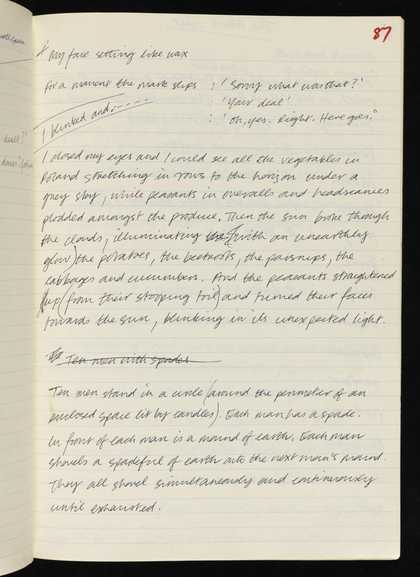 87
My face setting like wax
For a moment the mask slips : 'Sorry what was that?'
: 'Your deal'
I blinked and.......
: 'Oh, yes. Right. Here goes.'
I closed my eyes and I could see all the vegetables in
Poland stretching in rows to the horizon under a
grey sky, while peasants in overalls and headscarves
plodded amongst the produce. Then the sun broke through
the clouds, illuminating with an unearthly
glow the potatoes, the beetroots, the parsnips, the
cabbages and cucumbers. And the peasants straightened
up (from their stooping toil) and turned their faces
towards the sun, blinking in its unexpected light.
Ten men with spades
Ten men stand in a circle (around the perimeter of an
enclosed space lit by candles). Each man has a spade.
In front of each man is a mound of earth. Each man
shovels a spadeful of earth onto the next man's mound.
They all shovel simultaneously and continuously
until exhausted.